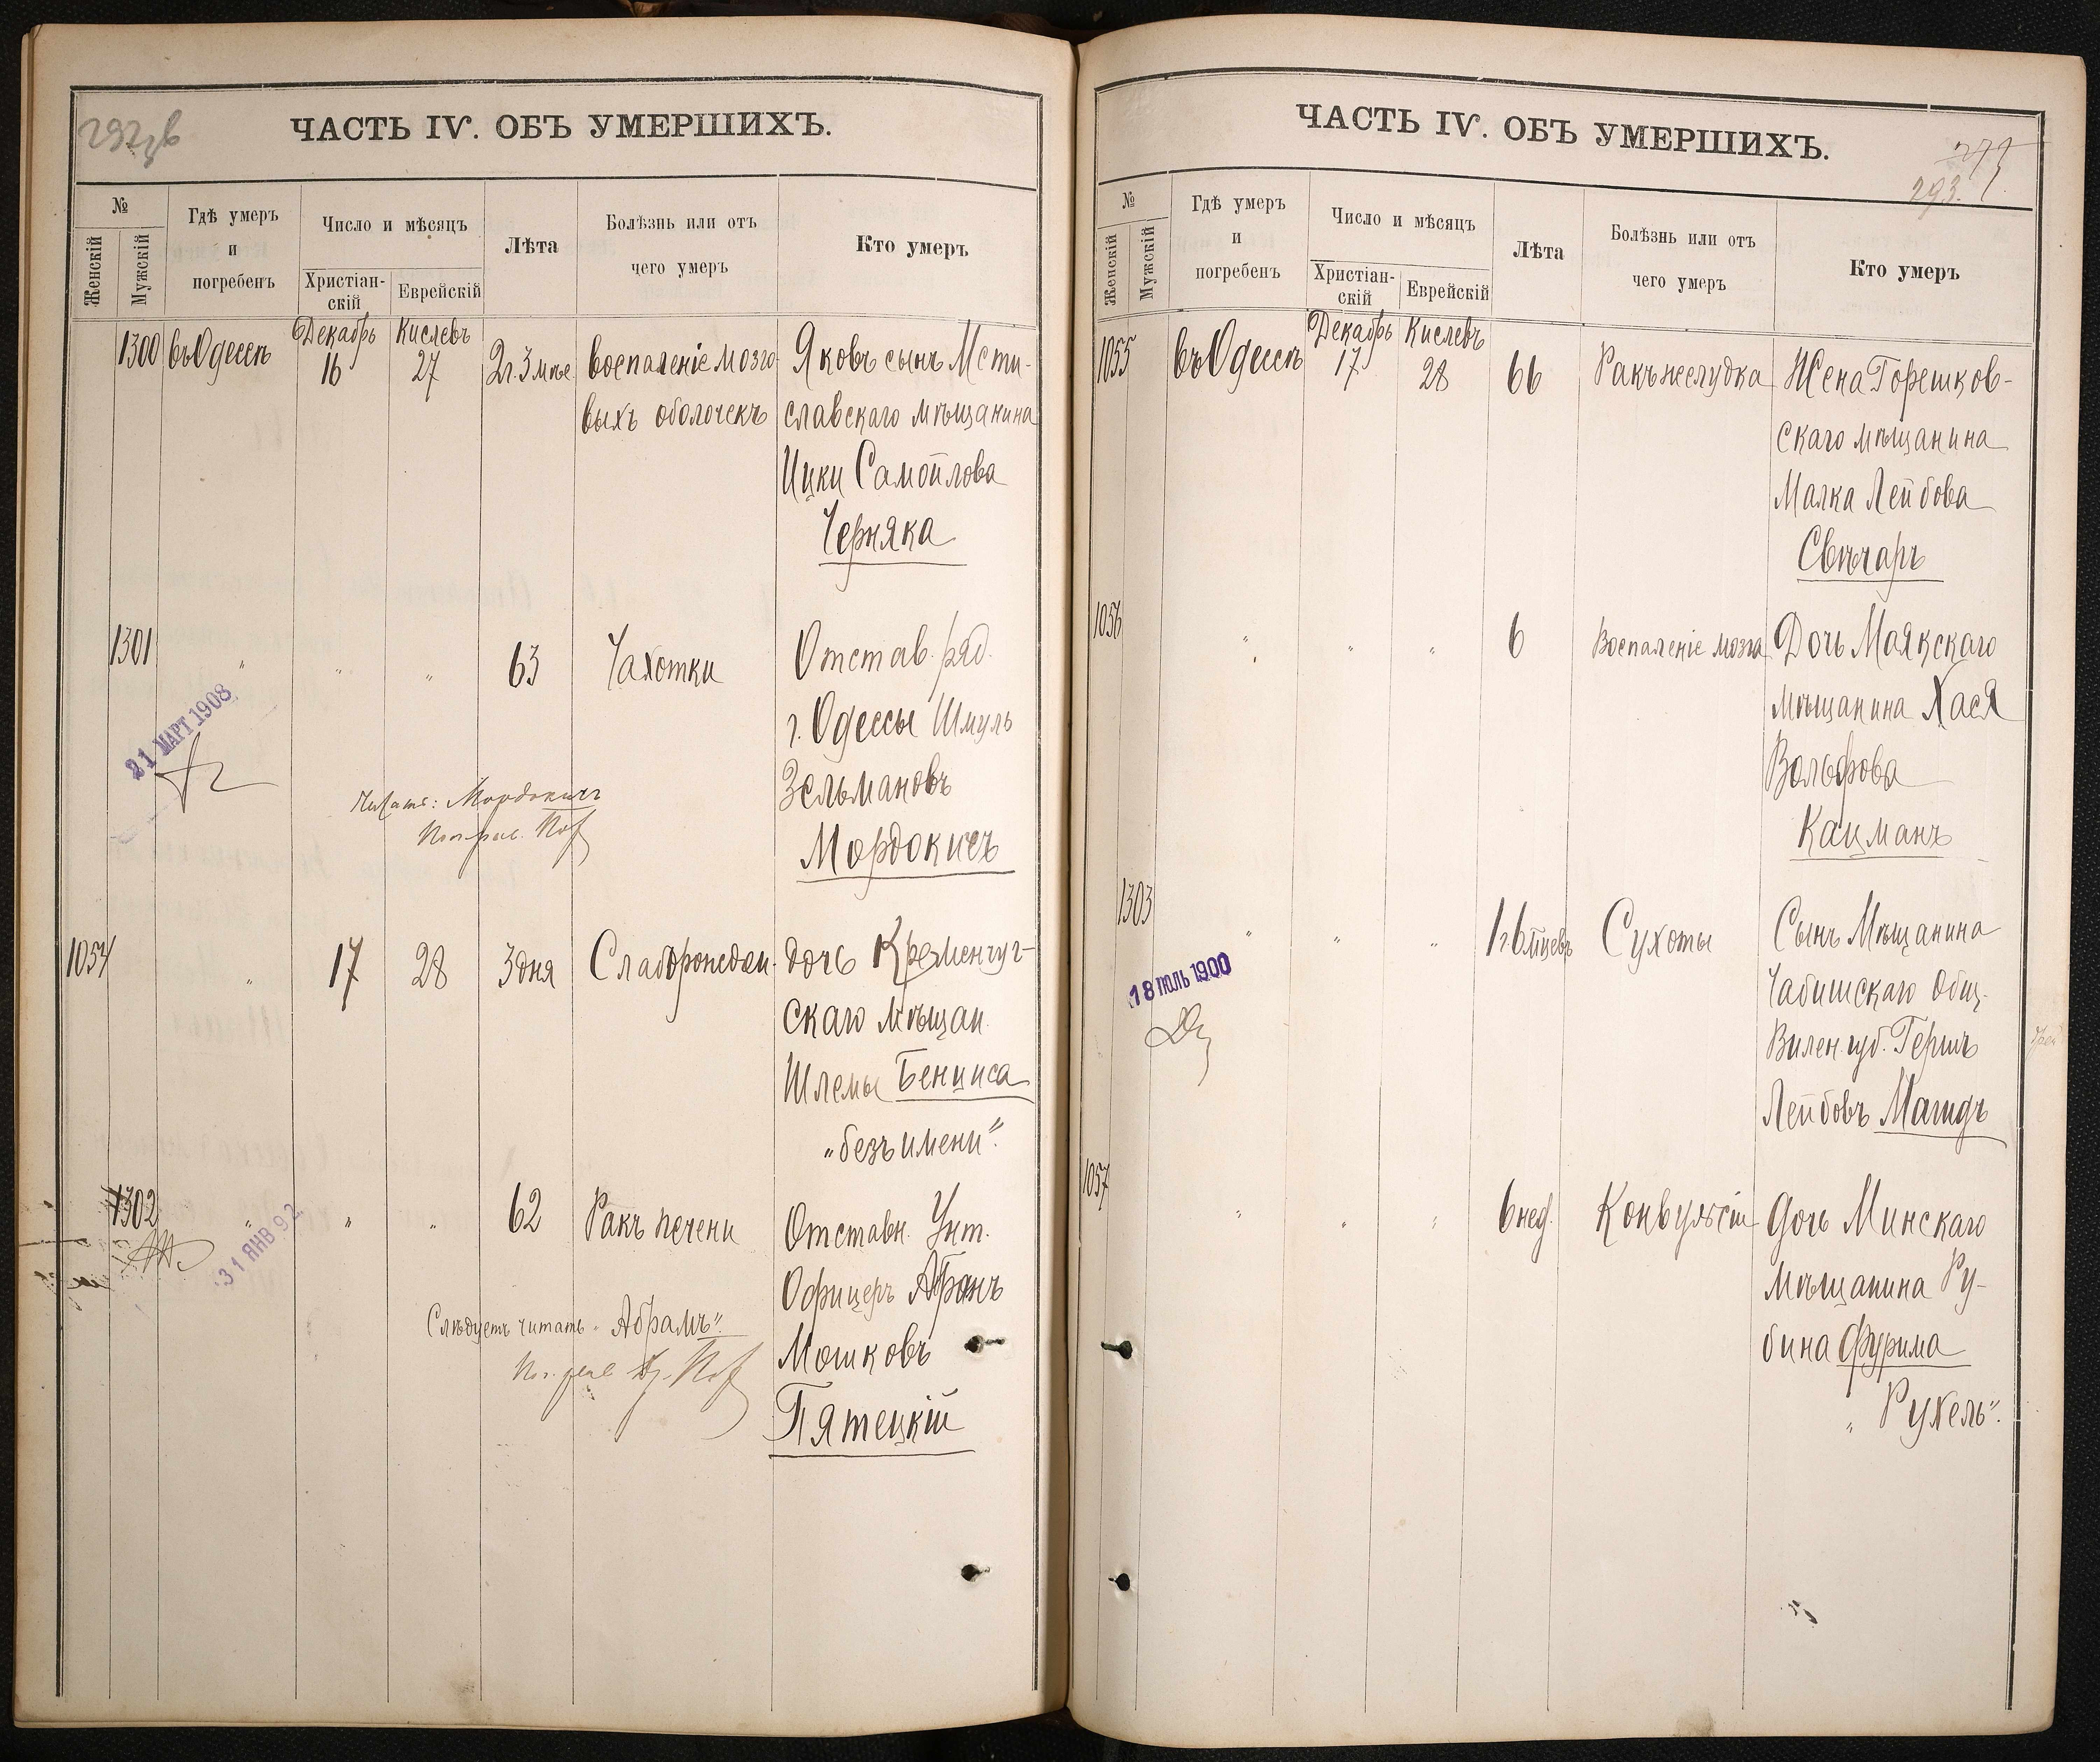 ЧАСТЬ IV. ОБЪ УМЕРШИХЪ.
№
Женскій
Мужскій
Гдѣ умеръ
и
погребенъ
Число и мѣсяцъ
Христіан-
скій
Еврейскій
Лѣта
Болѣзнь или отъ
чего умеръ
Кто умеръ
1300 въ Одессѣ Декабрь 16 Кислевъ 27 2г. 3 мѣс. воспаленіе мозго- Яковъ сынъ Мсти-
выхъ оболочекъ славскаго мѣщанина
Ицки Самойлова
Черняка
1301 " " " 63 Чахотки Отстав. ряд.
г. Одессы Шмуль
21 МАРТ 1908
Зельмановъ
Читать: Мордокисъ
Мордокисъ
1054 " 17 28 3 дня Слаборожден. дочь Кременчуг-
скаго мѣщан.
Шлемы Бенциса
„безъ имени“.
1302 " " " 62 Ракъ печени Отставн. Унт.
31 ЯНВ 92
Офицеръ Абранъ
Слѣдуетъ читать „Абрамъ“.
Мошковъ
Пятецкій
ЧАСТЬ IV. ОБЪ УМЕРШИХЪ.
293.
№
Женскій
Мужскій
Гдѣ умеръ
и
погребенъ
Число и мѣсяцъ
Христіан-
скій
Еврейскій
Лѣта
Болѣзнь или отъ
чего умеръ
Кто умеръ
1055 въ Одессѣ Декабрь 17 Кислевъ 28 66 Ракъ желудка Жена Горешков-
скаго мѣщанина
Малка Лейбова
Свѣчаръ
1056 " " " 6 Воспаленіе мозга Дочь Маякскаго
мѣщанина Хася
Вольфова
Кацманъ
1303 " " " 1г. 6 мѣцевъ Сухоты Сынъ Мѣщанина
18 ІЮЛЬ 1900
Чабишскаго Общ.
Вилен. губ. Гершъ
Лейбовъ Магидъ
1057 " " " 6 нед. Конвульсіи дочь Минскаго
Мѣщанина Ру-
бина Фурима
„Рухель“.